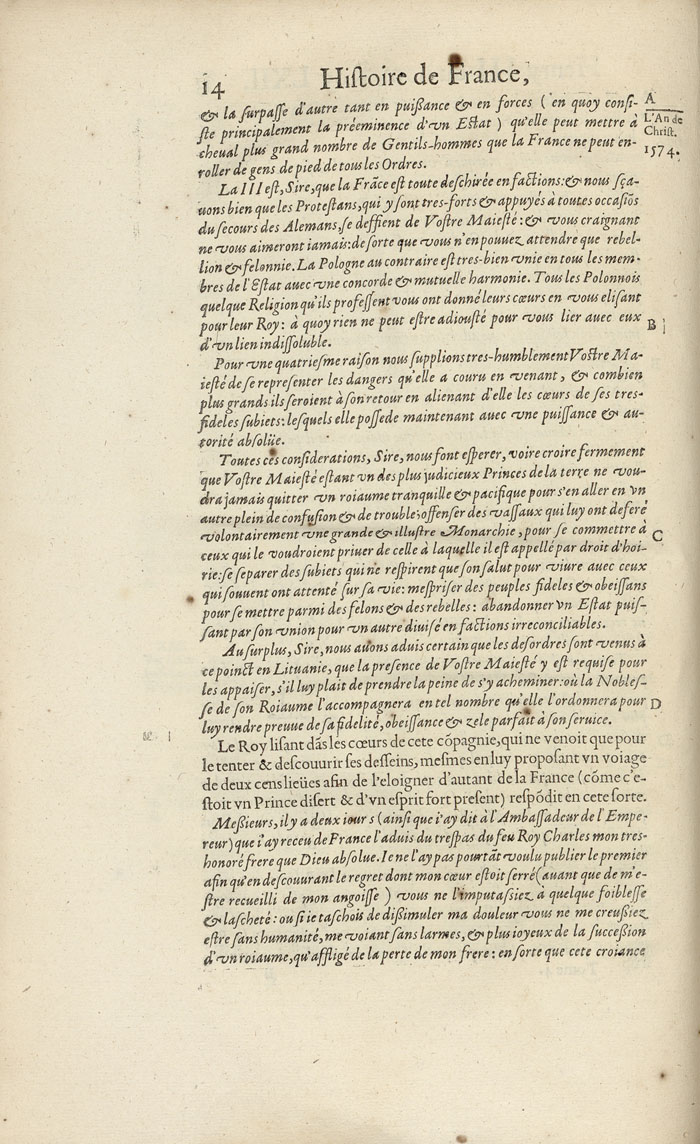 14 Histoire de France,
& la surpasse d'autre tant en puißance & en forces (en quoy consi- A
ste principalement la préeminence d'vn Estat) qu'elle peut mettre à L'An de
cheval plus grand nombre de Gentils-hommes que la France ne peut en- Christ.
roller de gens de pied de tous les Ordres. 1574.
La III est, Sire, que la Frāce est toute deschirée en factions: & nous sça-
uons bien que les Protestans, qui y sont tres-forts & appuyés à toutes occasiōs
du secours des Alemans, se deffient de Vostre Maiesté: & vous craignant
ne vous aimeront iamais: de sorte que vous n'en pouuez attendre que rebel-
lion & felonnie. La Pologne au contraire est tres-bien vnie en tous les mem-
bres de l'Estat auec vne concorde & mutuelle harmonie. Tous les Polonnois
quelque Religion qu'ils professent vous ont donné leurs cœurs en vous elisant
pour leur Roy: à quoy rien ne peut estre adiousté pour vous lier auec eux B
d'vn lien indissoluble.
Pour vne quatriesme raison nous supplions tres-humblement Vostre Ma-
iesté de se representer les dangers qu'elle a couru en venant, & combien
plus grands ils seroient à son retour en alienant d'elle les cœurs de ses tres-
fideles subiets: lesquels elle possede maintenant auec vne puissance & au-
torité absolüe.
Toutes ces considerations, Sire, nous font esperer, voire croire fermement
que Vostre Maiesté estant vn des plus judicieux Princes de la terre ne vou-
dra jamais quitter vn roiaume tranquille & pacifique pour s'en aller en vn
autre plein de confusion & de trouble: offenser des vassaux qui luy ont deferé
volontairement vne grande & illustre Monarchie, pour se commettre à C
ceux qui le voudroient priuer de celle à laquelle il est appellé par droit d'hoi-
rie: se separer des subiets qui ne respirent que son salut pour viure auec ceux
qui souuent ont attenté sur sa vie: mespriser des peuples fideles & obeissans
pour se mettre parmi des felons & des rebelles: abandonner vn Estat puis-
sant par son vnion pour vn autre diuisé en factions irreconciliables.
Au surplus, Sire, nous auons aduis certain que les desordres sont venus à
ce poinct en Lituanie, que la presence de Vostre Maiesté y est requise pour
les appaiser, s'il luy plait de prendre la peine de s'y acheminer: où la Nobles-
se de son Roiaume l'accompagnera en tel nombre qu'elle l'ordonnera pour D
luy rendre preuue de sa fidelité, obeissance & zele parfait à son seruice.
Le Roy lisant dās les cœurs de cete cōpagnie, qui ne venoit que pour
le tenter & descouurir ses desseins, mesmes en luy proposant vn voiage
de deux cens lieües afin de l'eloigner d'autant de la France (cōme c'e-
stoit vn Prince disert & d'vn esprit fort present) respōdit en cete sorte.
Meßieurs, il y a deux iours (ainsi que i'ay dit à l'Ambassadeur de l'Empe-
reur) que i'ay receu de France l'aduis du trespas du feu Roy Charles mon tres-
honoré frere que Dieu absolue. Ie ne l'ay pas pourtāt voulu publier le premier
afin qu'en descouurant le regret dont mon cœur estoit serré (auant que de m'e-
stre recueilli de mon angoisse) vous ne l'imputassiez à quelque foiblesse
& lascheté: ou si ie taschois de dißimuler ma douleur vous ne me creußiez
estre sans humanité, me voiant sans larmes, & plus ioyeux de la succeßion
d'vn roiaume, qu'affligé de la perte de mon frere: en sorte que cete croiance